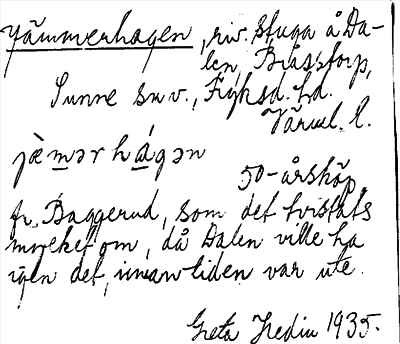 Jämmerhagen, riv. stuga å Da-
len, Blåsstorp,
Sunne sn v., Fryksd. hd.
Värml. l.
jæmər hagən
50-årsköp
fr. Baggerud, som det tvistats
mycket om, då Dalen ville ha
igen det, innan tiden var ute.
Greta Hedin 1935.